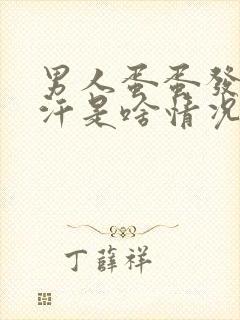 男人蛋蛋發
汗是啥情況
丁薛祥